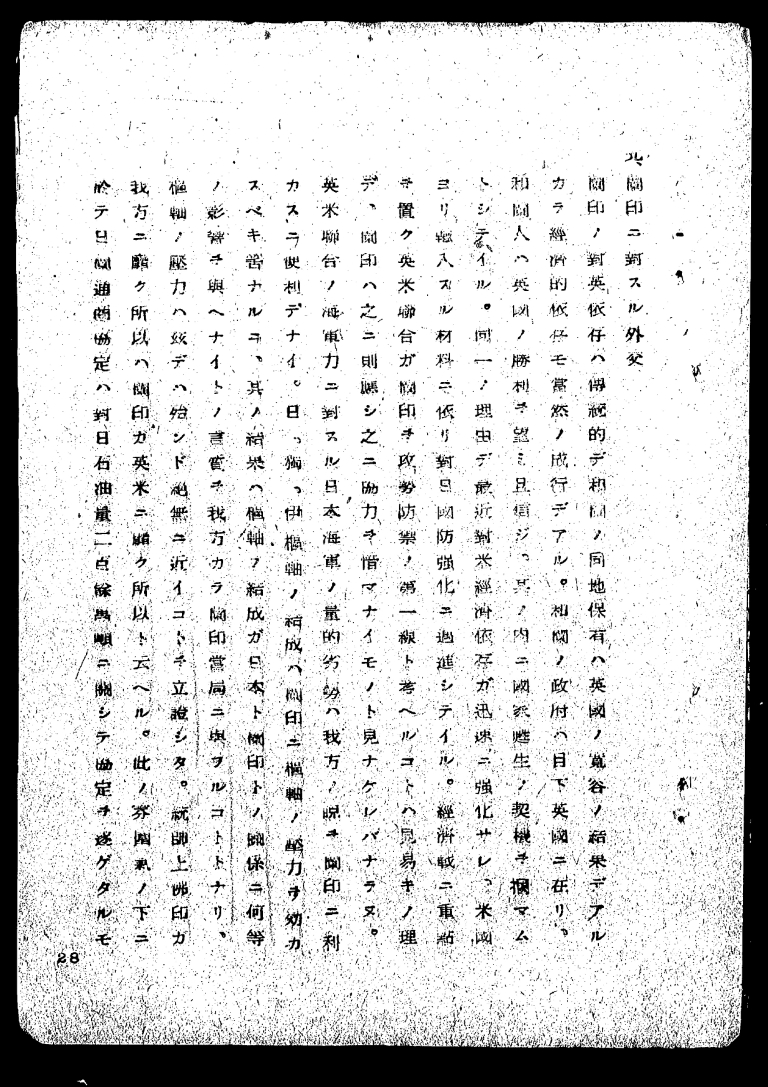 九、蘭印ニ對スル外交
蘭印ノ對英依存ハ傳統的デ和蘭ノ同地保有ハ英國ノ寬容ノ結果デアル
カラ經濟的依存モ當然ノ成行デアル。和蘭ノ政府ハ目下英國ニ在リ。
和蘭人ハ英國ノ勝利ヲ望ミ且信ジ、其ノ內ニ國家甦生ノ契機ヲ摑マム
トシテイル。同一ノ理由デ最近對米經濟依存ガ迅速ニ強化サレ、米國
ヨリ輸入スル材料ニ依リ對日國防强化ニ邁進シテイル。經濟戰ニ重點
ヲ置ク英米聯合ガ蘭印ヲ攻勢防禦ノ第一線ト考ヘルコトハ見易キノ理
デ、蘭印ハ之ニ則應シ之ニ協力ヲ惜マナイモノト見ナケレバナラヌ。
英米聯合ノ海軍力ニ對スル日本海軍ノ量的劣勢ハ我方ノ睨ヲ蘭印ニ利
カスニ便利デナイ。日、獨、伊樞軸ノ結成ハ蘭印ニ樞軸ノ壓力ヲ効カ
スベキ筈ナルニ、其ノ結果ハ樞軸ノ結成ガ日本ト蘭印トノ關係ニ何等
ノ影響ヲ與ヘナイトノ言質ヲ我方カラ蘭印當局ニ與フルコトトナリ、
樞軸ノ壓力ハ玆デハ殆ンド絕無ニ近イコトヲ立證シタ。統帥上佛印ガ
我方ニ靡ク所以ハ蘭印ガ英米ニ靡ク所以ト云ヘル。此ノ雰圍氣ノ下ニ
於テ日蘭通商協定ハ對日石油量二百餘萬噸ニ關シテ協定ヲ遂ゲタルモ
28